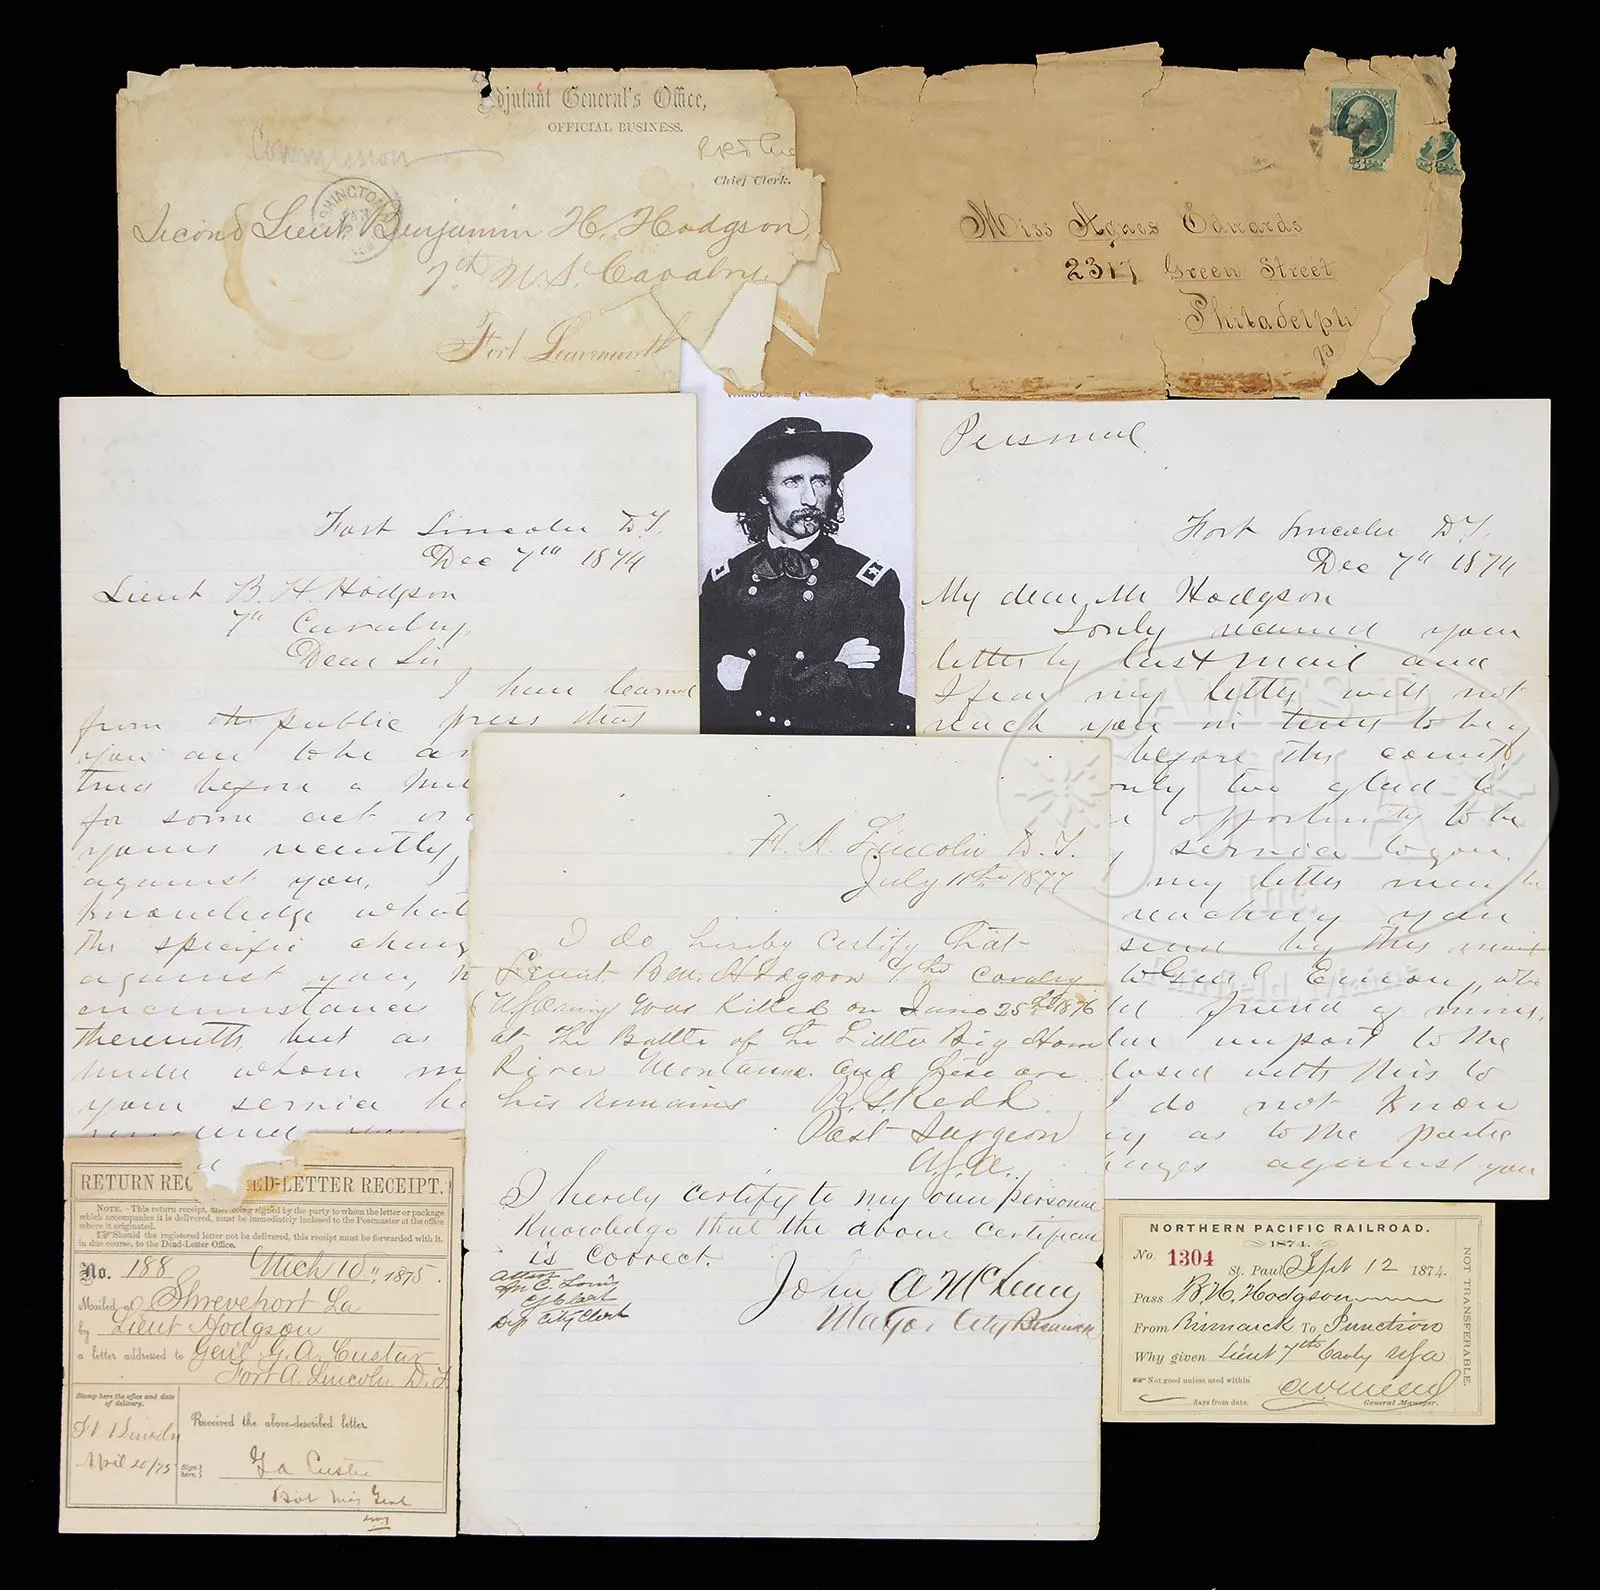 Adjutant General's Office,
OFFICIAL BUSINESS.
Commission
Chief Clerk.
Second Lieut Benjamin H. Hodgson,
7th U.S. Cavalry.
Fort Leavenworth
Miss Agnes Edwards
2317 Green Street
Philadelphi
Pa
Fort Lincoln D.T.
Dec 7th 1874
Lieut B H Hodgson
7th Cavalry,
Dear Sir
I have learned
from the public press that
you are to be
tried before a
for some act or
yours recently,
against you, I
knowledge what
the specific charg
against you,
circumstance
therewith, but as
under whom
your service
Personal
Fort Lincoln D.T.
Dec 7th 1874
My dear Mr Hodgson
I only received your
letter by last mail and
I fear my letter will not
reach you in time to be
before the court
only too glad to
opportunity to be
service to you.
my letter
reaching you
send by this
to Genl who
friend of mine,
import to the
losed with this to
I do not know
as to the
against you
Ft. A. Lincoln D.T.
July 11th 1877
I do hereby certify that
Lieut. Ben. Hodgson 7th Cavalry
was killed on June 25th 1876
at the Battle of the Little Big Horn
River Montana. and here are
his remains
Post Surgeon
I hereby certify to my own personal
knowledge that the above certificate
is correct.
John A McLeny
Mayor City Bismarck
Dep. City Clerk
RETURN REC ED-LETTER RECEIPT.
NOTE.—This return receipt, after being signed by the party to whom the letter or package
which accompanies it is delivered, must be immediately inclosed to the Postmaster at the office
where it originated.
Should the registered letter not be delivered, this receipt must be forwarded with it,
in due course, to the Dead-Letter Office.
No. 188 Mch 10", 1875.
Mailed at Shreveport La
by Lieut Hodgson
a letter addressed to Genl G. A. Custar
Fort A. Lincoln D.T.
Stamp here the office and date
of delivery.
Ft Lincoln
April 20/75
Received the above-described letter.
Sign here.
G A Custer
Bvt Maj Genl
NORTHERN PACIFIC RAILROAD.
1874.
No. 1304 St. Paul Sept 12 1874.
Pass B. H. Hodgson
From Bismarck To Junction
Why given Lieut 7th Cavly USA
Not good unless used within
days from date. General Manager.
NOT TRANSFERABLE.
JAMES D.
JULIA
Inc.
Fairfield, Maine